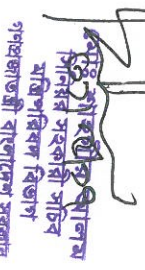 আলম
সিনিয়র সহকারী সচিব
মন্ত্রিপরিষদ বিভাগ
গণপ্রজাতন্ত্রী বাংলাদেশ সরকার